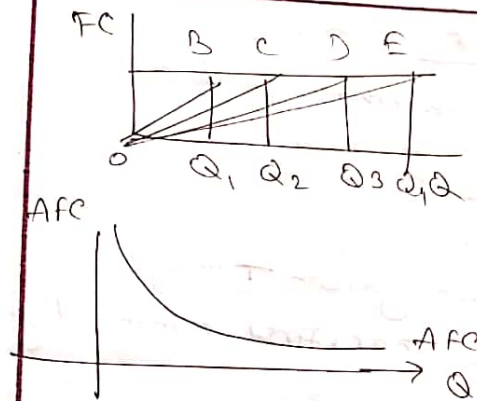 FC B C D E
O Q1 Q2 Q3 Q4 Q
AFC
AFC
Q